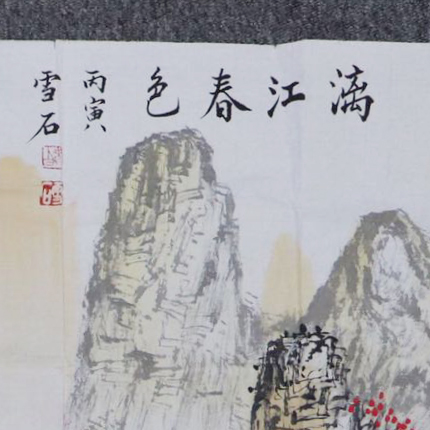 漓江春色
丙寅
雪石